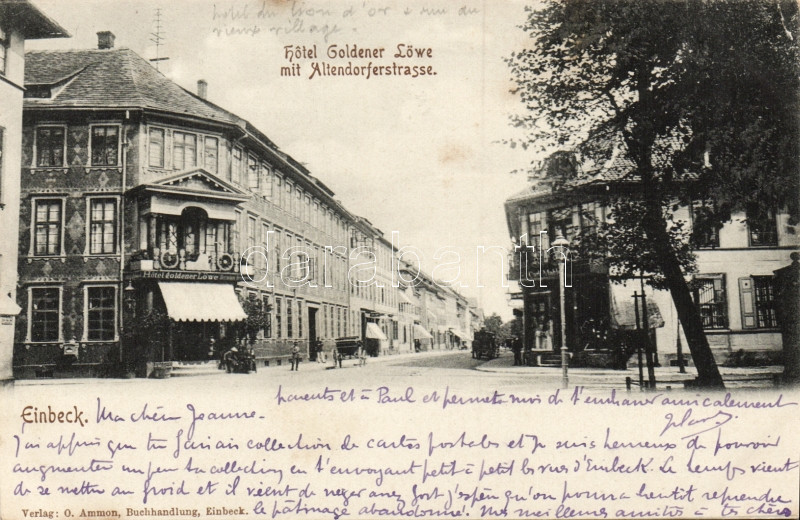 hôtel du lion d'or & rue du
vieux village.
Hôtel Goldener Löwe
mit Altendorferstrasse.
Hôtel Goldener Löwe
darabanth
parents et à Paul et permets moi de t'embrasser amicalement
Einbeck. Ma chère Jeanne.
J'ai appris que tu faisais collection de cartes postales et je suis heureux de pouvoir
augmenter un peu ta collection en t'envoyant petit à petit les vues d'Einbeck. Le temps vient
de se mettre au froid et il vient de neiger assez fort j'espère qu'on pourra bientôt reprendre
Verlag: O. Ammon, Buchhandlung, Einbeck. le patinage abandonné. Mes meilleures amitiés à tes chers